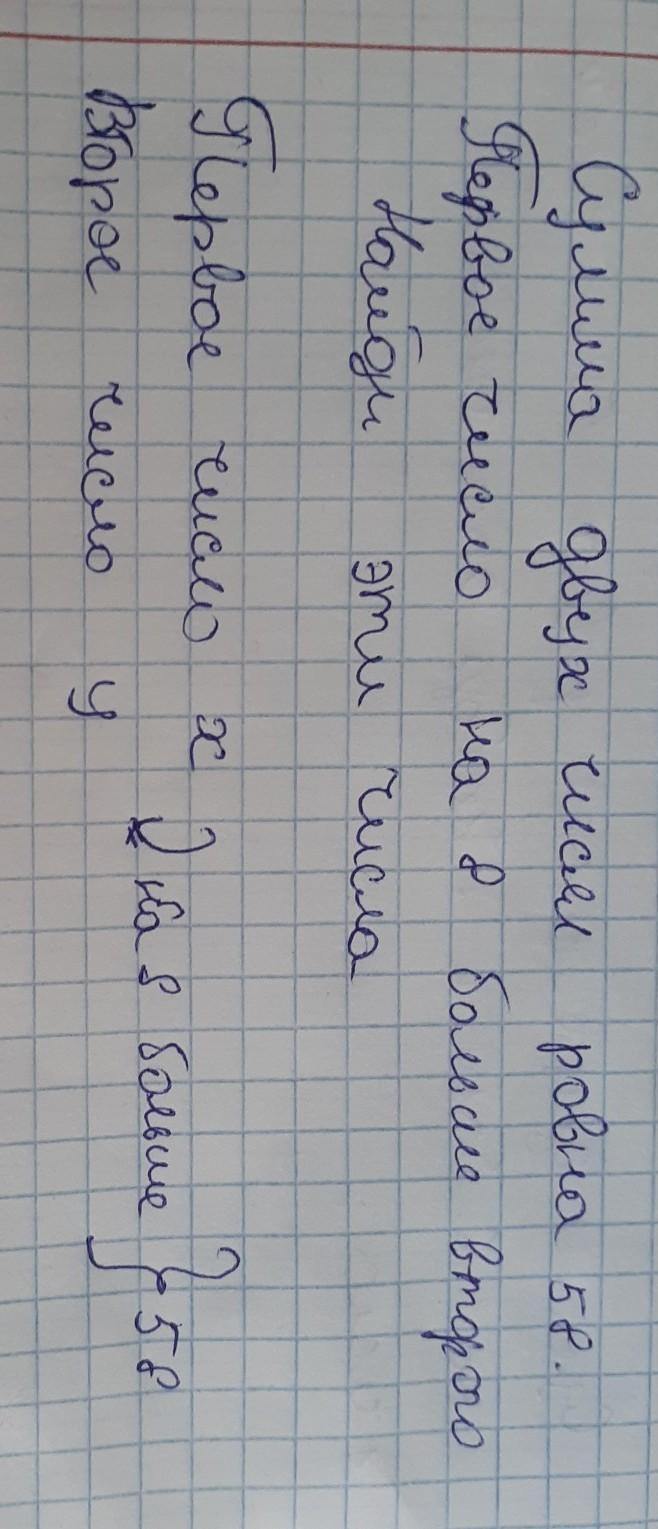 Сумма двух чисел ровна 58.
Первое число на 8 больше второго
Найди эти числа
Первое число х
на 8 больше } 58
Второе число у